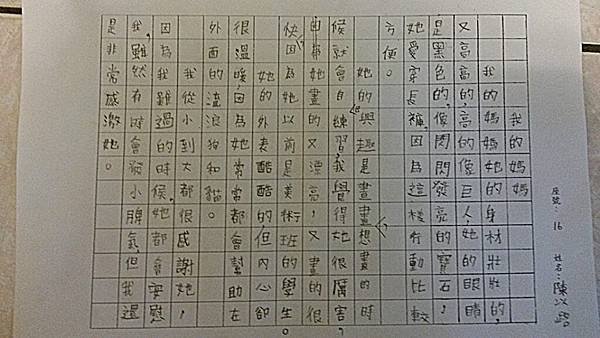 座號：16 姓名：陳以
我的媽媽
我的媽媽的身材壯壯的，
又高高的，像巨人，她的眼睛
是黑色的，像閃閃發亮的寶石，
她愛穿長褲，因為這樣行動比較
方便。
她的興趣是畫畫，想畫的時
候就會自己練習，我覺得她很厲害，
她畫的又漂亮，又畫的很
快，因為她以前是美術班的學生。
她的外表酷酷的，但內心卻
很溫暖，因為她常常都會幫助在
外面的流浪狗和貓。
我從小到大都很感謝她，
因為我難過的時候，她都會安慰
我，雖然有時會發小脾氣，但我還
是非常感激她。